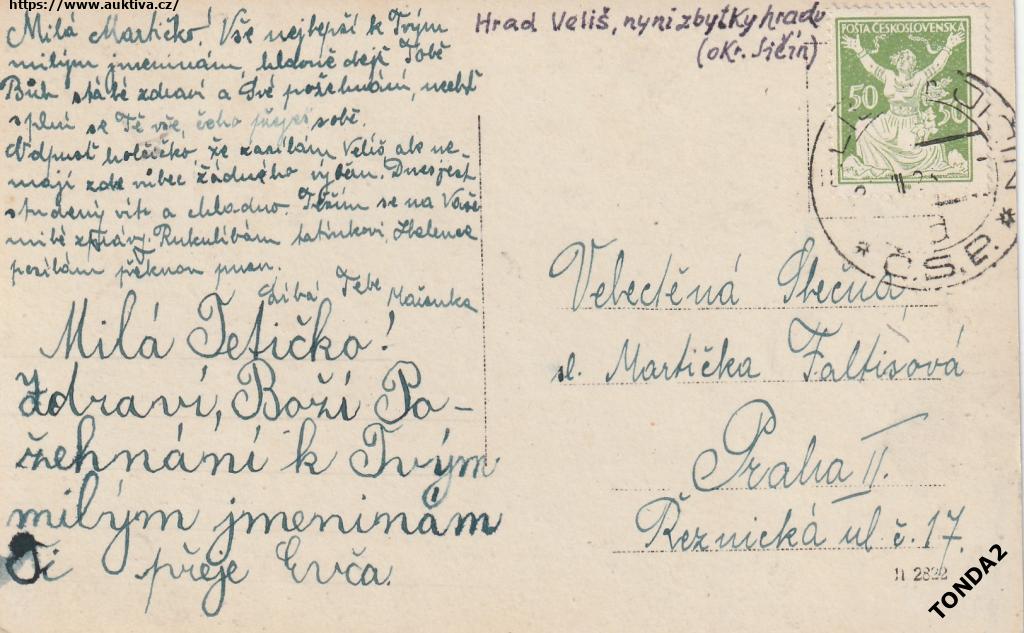 https://www.auktiva.cz/
Milá Martičko! Vše nejlepší k Tvým
milým jmeninám, hlavně dejž Tobě
Bůh stálé zdraví a Své požehnání, nechť
splní se Tě vše, čeho přeješ sobě.
Odpusť holčičko že zasílám Veliš ale ne-
mají zde vůbec žádného výběru. Dnes jest
studený vítr a chladno. Těším se na Vaše
milé zprávy. Rukulíbám tatínkovi, Helence
posílám pěknou pusu.
Líbá Tebe Mařenka
Milá Tetičko!
Zdraví, Boží Po-
žehnání k Tvým
milým jmeninám
Ti přeje Evča.
Hrad Veliš, nyní zbytky hradu
(okr. Jičín)
POŠTA ČESKOSLOVENSKÁ
50 50
JIČÍN
Č.S.P.
Velectěná Slečna
sl. Martička Faltisová
Praha II.
Řeznická ul č. 17.
11 2822
TONDA2